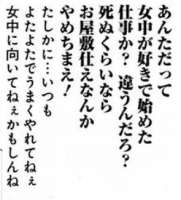 あんただって
女中が好きで始めた
仕事か？違うんだろ？
死ぬくらいなら
お屋敷仕えなんか
やめちまえ！
たしかに…いつも
よたよたでうまくやれてねぇ
女中に向いてねぇかもしんね